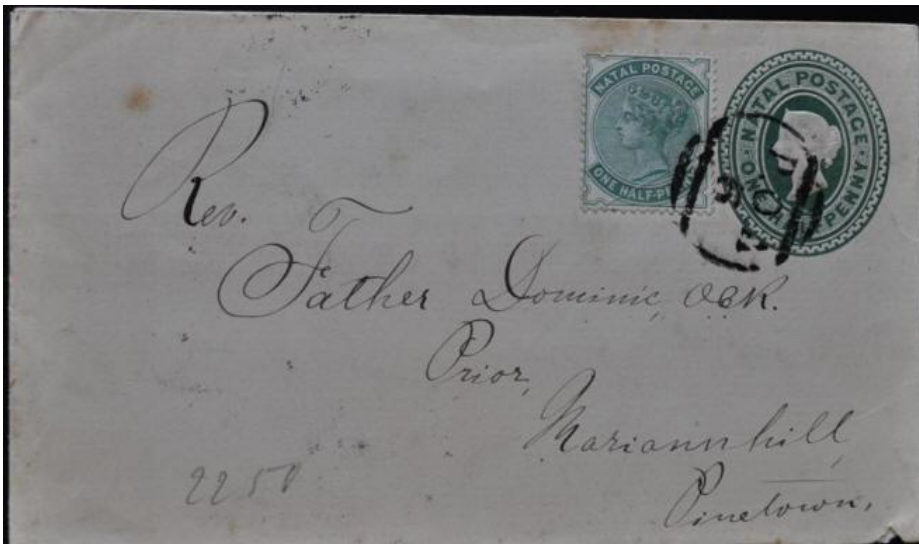 NATAL POSTAGE
ONE HALF-PENNY
NATAL POSTAGE
PENNY
Rev.
Father Dominic,
Prior,
Mariannhill,
Pinetown,
2250